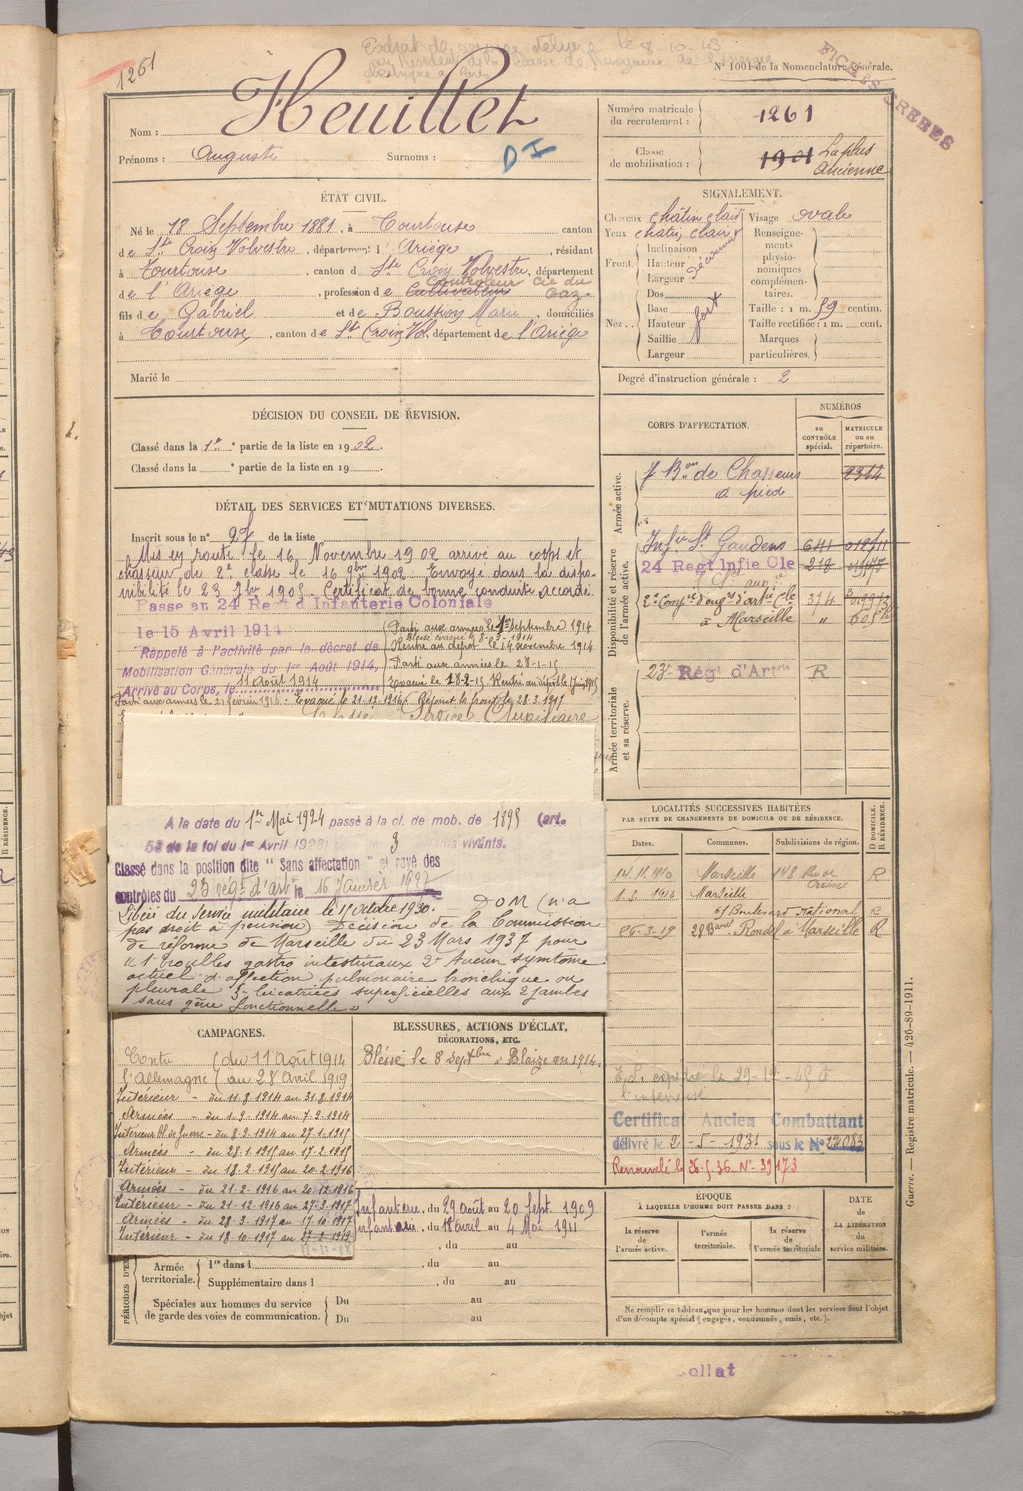 1261
Extrait de
le 8-10-43
N° 1001 de la Nomenclature générale.
FICHES
Nom : Heuillet
Prénoms : Auguste Surnoms : DI
Numéro matricule du recrutement : 1261
Classe de mobilisation : 1901 La plus Ancienne
ÉTAT CIVIL.
Né le 18 Septembre 1881, à Tourtouse canton
de Ste Croix Volvestre, département l'Ariège, résidant
à Tourtouse, canton d Ste Croix Volvestre, département
de l'Ariège, profession de Cultivateur Controleur Cie du Gaz
fils de Gabriel et de Boussion Marie, domiciliés
à Tourtouse, canton de Ste Croix Vol, département de l'Ariège
Marié le
SIGNALEMENT.
Cheveux châtin clair Visage ovale
Yeux chatin clair Renseignements physionomiques complémentaires.
Front. Inclinaison
Hauteur découvert
Largeur
Nez.. Dos
Base fort
Hauteur
Saillie
Largeur
Taille : 1 m. 59 centim.
Taille rectifiée : 1 m. cent.
Marques particulières.
Degré d'instruction générale : 2
DÉCISION DU CONSEIL DE REVISION.
Classé dans la 1re partie de la liste en 1902.
Classé dans la e partie de la liste en 19
CORPS D'AFFECTATION.
NUMÉROS
au CONTRÔLE spécial.
MATRICULE ou au répertoire.
Armée active.
7 Bon de Chasseurs 2314
à pied
Disponibilité et réserve de l'armée active.
Infie St Gaudens 611
24 Regt Infie Cle 218
à Marseille " 605
Armée territoriale et sa réserve.
23e Régt d'Artie R
DÉTAIL DES SERVICES ET MUTATIONS DIVERSES.
Inscrit sous le n° 27 de la liste
Mis en route le 16 Novembre 1902 arrivé au corps et
chasseur de 2e classe le 16 9bre 1902. Envoyé dans la dispo-
nibilité le 23 7bre 1905. Certificat de bonne conduite accordé.
Passe au 24 Regt d'Infanterie Coloniale
le 15 Avril 1914
Rappelé à l'activité par le décret de
Mobilisation Générale du 1er Août 1914,
Arrivé au Corps, le 11 août 1914
Parti aux armées le 1er septembre 1914
Blessé évacué le 8-9-1914
Rentré au dépôt le 14 novembre 1914
Parti aux armées le 28-1-15
Evacué le 18-2-15 Rentré au dépôt le 1 juin 1915
Parti aux armées le 21 février 1916. Evacué le 21-12-1916. Rejoint le front le 28-3-1917
Service Auxiliaire
A la date du 1er Mai 1924 passé à la cl. de mob. de 1895 (art.
58 de la loi du 1er Avril 1923) 3 enfants vivants.
Classé dans la position dite " Sans affectation " et rayé des
contrôles du 23 régt d'arte le 16 Janvier 1927
Libéré du service militaire le 1er octobre 1930. DOM (n'a
pas droit à pension) Décision de la Commission
de réforme de Marseille du 23 Mars 1937 pour
" 1° troubles gastro intestinaux 2° Aucun symtome
actuel d'affection pulmonaire bronchique ou
pleurale 3° cicatrices superficielles aux 2 jambes
sans gêne fonctionnelle "
LOCALITÉS SUCCESSIVES HABITÉES
PAR SUITE DE CHANGEMENTS DE DOMICILE OU DE RÉSIDENCE.
Dates. Communes. Subdivisions de région. D DOMICILE. R RÉSIDENCE.
Marseille 148 Rue de Crimée R
1.3.1912 Marseille
61 Boulevard National R
26-3-19 28 Bard Rondel à Marseille R
CAMPAGNES.
Contre (du 11 Août 1914
l'Allemagne (au 28 Avril 1919
Intérieur - du 11.8.1914 au 31.8.1914
Armées - du 1.9.1914 au 7.9.1914
Intérieur Bl. de Guerre - du 8.9.1914 au 27.1.1915
Armées - du 28.1.1915 au 17.2.1915
Intérieur - du 18.2.1915 au 20.2.1916
Armées - du 21.2.1916 au 20.12.1916
Intérieur - du 21.12.1916 au 27.3.1917
Armées - du 28.3.1917 au 17.10.1917
Intérieur - du 18.10.1917 au 27.2.1919
11-11-18
BLESSURES, ACTIONS D'ÉCLAT, DÉCORATIONS, ETC.
Blessé le 8 septbre à Blaize en 1914.
E.S. expédié le 29-12-45 à
l'intéressé
Certificat Ancien Combattant
délivré le 2-5-1931 sous le N° 22083
Renouvelé le 26.5.36 N° 39173
Infanterie, du 29 août au 20 Sept. 1909
Infanterie, du 18 avril au 4 Mai 1911
, du au
Armée territoriale. 1re dans l , du au
Supplémentaire dans l , du au
Spéciales aux hommes du service de garde des voies de communication. Du au
Du au
ÉPOQUE
À LAQUELLE L'HOMME DOIT PASSER DANS :
la réserve de l'armée active. l'armée territoriale. la réserve de l'armée territoriale
DATE DE LA LIBÉRATION du service militaire.
Ne remplir ce tableau que pour les hommes dont les services font l'objet
d'un décompte spécial (engagés, condamnés, omis, etc.).
Guerre. — Registre matricule. — 426-89-1911.